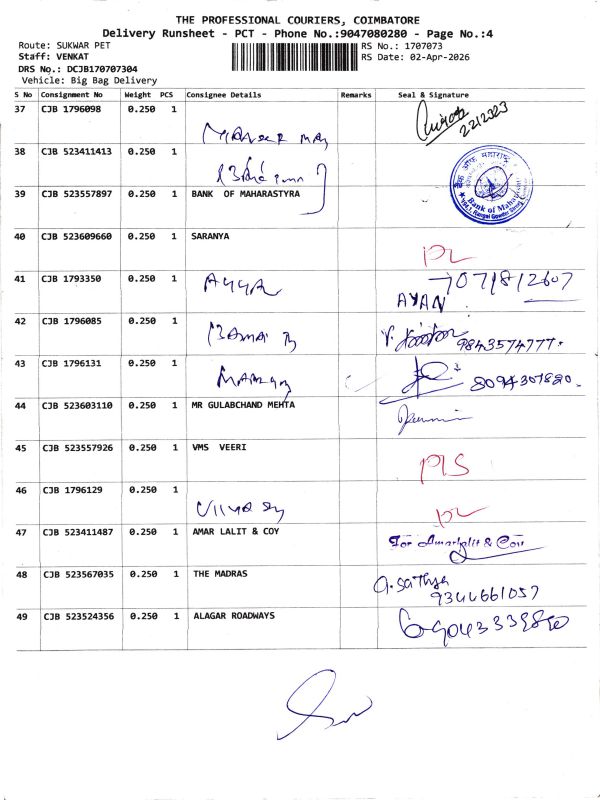 THE PROFESSIONAL COURIERS, COIMBATORE
Delivery Runsheet - PCT - Phone No.:9047080280 - Page No.:4
Route: SUKWAR PET RS No.: 1707073
Staff: VENKAT RS Date: 02-Apr-2026
DRS No.: DCJB170707304
Vehicle: Big Bag Delivery
S No Consignment No Weight PCS Consignee Details Remarks Seal & Signature
37 CJB 1796098 0.250 1
38 CJB 523411413 0.250 1
39 CJB 523557897 0.250 1 BANK OF MAHARASTYRA
बैंक ऑफ महाराष्ट्र
Bank of Maha
40 CJB 523609660 0.250 1 SARANYA
41 CJB 1793350 0.250 1 AYYA 7071812607
AYAN
42 CJB 1796085 0.250 1 9843574777
43 CJB 1796131 0.250 1 8094307880
44 CJB 523603110 0.250 1 MR GULABCHAND MEHTA
45 CJB 523557926 0.250 1 VMS VEERI
46 CJB 1796129 0.250 1
47 CJB 523411487 0.250 1 AMAR LALIT & COY For Amarlalit & Coy
48 CJB 523567035 0.250 1 THE MADRAS a.sathya
9344661057
49 CJB 523524356 0.250 1 ALAGAR ROADWAYS